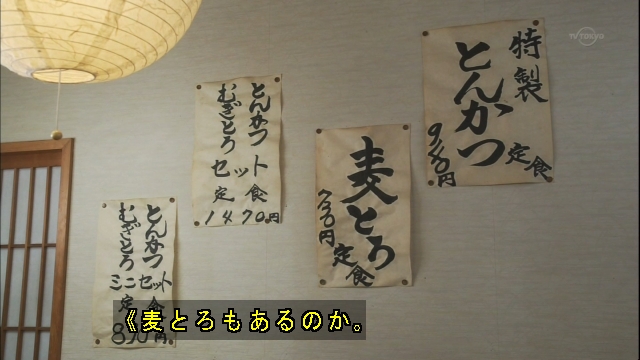 特製
とんかつ
定食
980円
麦とろ
定食
とんかつ
むぎとろ
セット
定食
1470円
とんかつ
むぎとろ
ミニセット
定食
《麦とろもあるのか。
TV TOKYO